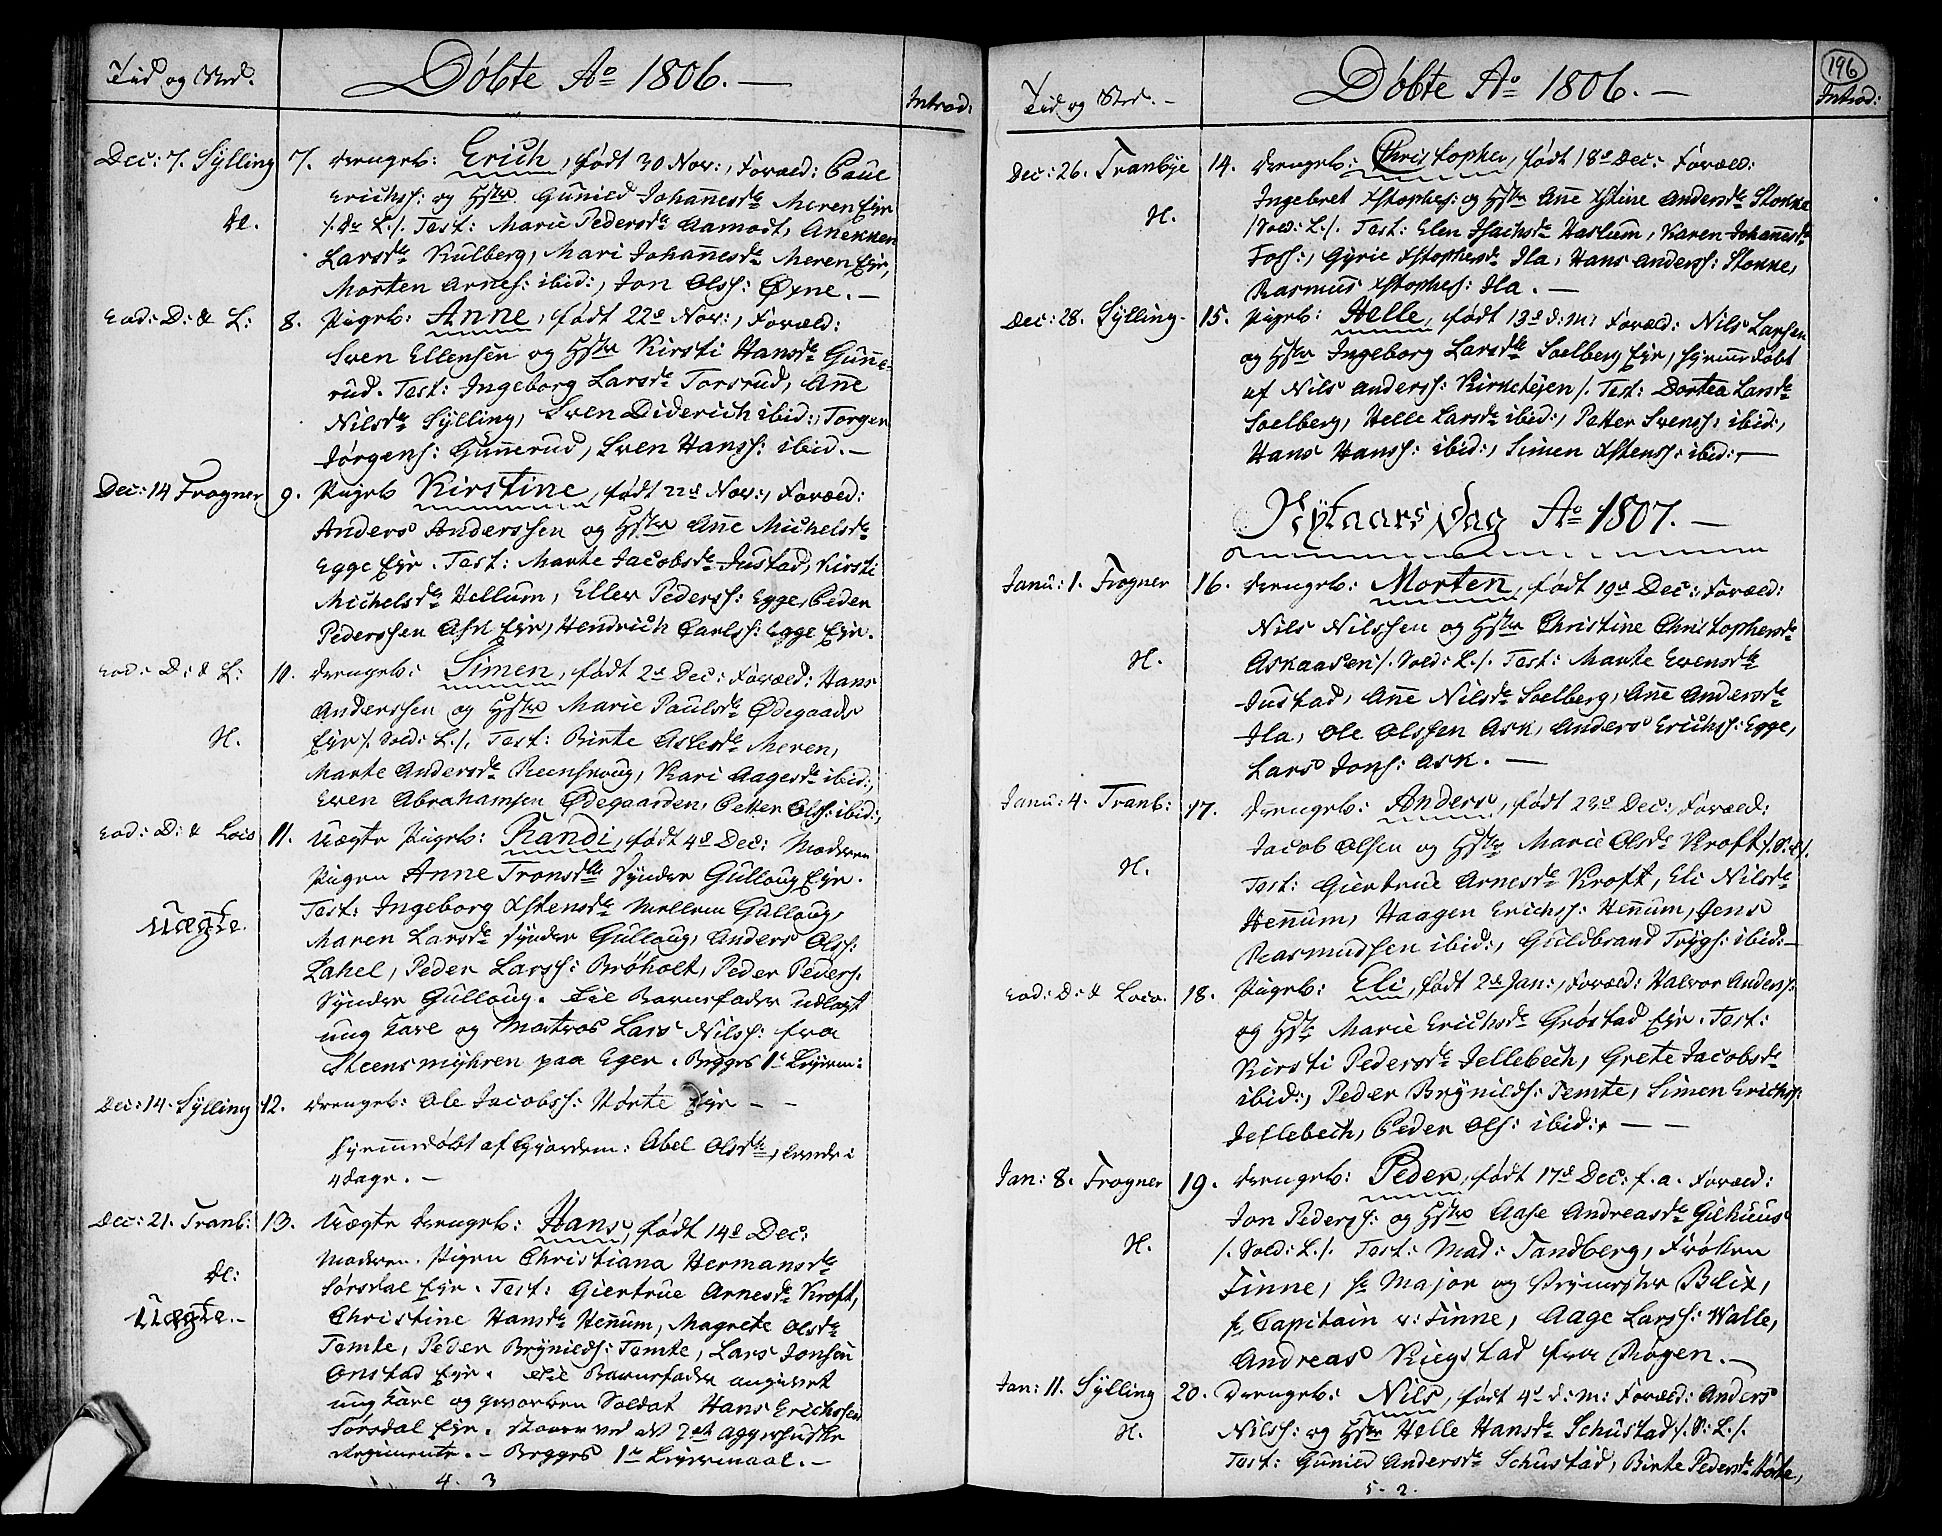 Tid og Sted.
Döbte Ao 1806. —
Introd:
Dec: 7. Sylling
7. Drengeb: Erich, födt 30 Nov:, Foræld: Paul
Erichs: og Hstre Gunild Johannesde Meren Eje
de. /: do L./. Test: Marie Pedersde Aamodt, Anekken
Larsde Kulberg, Mari Johannesde Meren Eje,
Morten Arnes: ibid:, Jon Olss: Øxne. —
Eod: D: & L: 8. Pigeb: Anne, födt 22d Nov:, Foræld:
Sven Ellensen og Hstre Kirsti Hansde Gunne-
rud. Test: Ingeborg Larsde Torsrud, Anne
Nilsde Sylling, Sven Diderich ibid:, Torger
Jörgens: Gunnerud, Sven Hanss: ibid. —
Dec: 14 Frogner 9. Pigeb Kirstine, födt 22d Nov:, Foræld:
Anders Anderssen og Hstre Anne Michelsde
Egge Eje. Test: Marte Jacobsde Justad, Kirsti
Michelsde Hellum, Eller Peders: Egge, Peder
Pederssen Ask Eje, Hendrich Carls: Egge Eje.
Eod: D: & L: 10. Drengeb: Simen, födt 2d Dec: Foræld: Hans
Anderssen og Hstre Marie Paulsde Ødegaards
H. Eje /. Sold: L./. Test: Birte Aslesde Meren,
Marte Andersde Reenskoug, Kari Aagesde ibid:,
Even Abrahamsen Ødegaarden, Petter Ols: ibid:,
Eod: D: & Loco 11. Uægte Pigeb: Randi, födt 4d Dec: Moderen
Pigen Anne Tronsdtr Synder Gulloug Eje.
Test: Ingeborg Xstensde Mellem Gulloug,
Uægte. Maren Larsde Synder Gulloug, Anders Ols:
Lahel, Peder Larss: Bröholt, Peder Peders:
Synder Gulloug. Til Barnefader udlagt
ung Karl og Matros Lars Nils: fra
Steensmyhren paa Eger. Begges 1te Leyerm:
Dec: 14. Sylling 12. Drengeb: Ole Jacobss: Hörte Eje — —
hjemmedöbt af Gjordem: Abel Olsdtr, levede i
4 dage. —
Dec: 21. Tranb: 13. Uægte Drengeb: Hans, födt 14d Dec:
Moderen Pigen Christiana Hermansde
de: Sörsdal Eje. Test: Giertrue Arnesde Kroft,
Uægte. — Christine Hansde Hennum, Magrete Olsde
Temte, Peder Brynilds: Temte, Lars Jonsen
Onstad Eje. Til Barnefader angivet
ung Karl og gworben Soldat Hans Erichssen
Sörsdal Eje. staaer ved det 2det Aggerhuske
Regimente. — Begges 1te Leyermaal. —
4. 3
196
Tid og Sted. —
Döbte Ao 1806. —
Introd:
Dec: 26. Tranbye 14. Drengeb: Christopher, födt 18d Dec: Foræld:
Ingebret Xstophes: og Hstre Anne Xstine Andersde Stokke
H. /Sold: L./. Test: Elen Isachsde Haslum, Karen Johannesde
Foss:, Gyrie Xstophersde Ila, Hans Anderss: Stokke,
Rasmus Xstophes: Ila. —
Dec: 28. Sylling. 15. Pigeb: Helle, födt 13d d: M: Foræld: Nils Larsen
og Hstre Ingeborg Larsde Soelberg Eje, hjemmedöbt
af Nils Anderss: Kirketejen /. Test: Dortea Larsde
Soelberg, Helle Larsde ibid:, Petter Svens: ibid:,
Hans Hanss: ibid:, Simen Xstens: ibid:, —
Nytaars Dag Ao 1807. —
Janu: 1. Frogner 16. Drengeb: Morten, födt 19d Dec:, Foræld:
Nils Nilssen og Hstre Christine Christophersde
H. Askaasen /. Sold: L./. Test: Marte Evensde
Justad, Anne Nilsde Soelberg, Anne Andersde
Ila, Ole Olssen Ask, Anders Erichs: Egge,
Lars Jons: Ask. —
Janu: 4. Tranb: 17. Drengeb: Anders, födt 23d Dec:, Foræld:
Jacob Olsen og Hstre Marie Olsde Kroft /. S: L/.
H. Test: Giertrue Arnesde Kroft, Eli Nilsde
Hennum, Haagen Erichs: Hennum, Jens
Rasmudsen ibid:, Guldbrand Trygs: ibid: —
Eod: D: & Loco. 18. Pigeb: Eli, födt 2d Jan:, Foræld: Halvor Anders:
og Hstr Marie Erichsde Gröstad Eje. Test:
Kirsti Pedersde Jellebech, Grete Jacobsde
ibid:, Peder Brynilds: Temte, Simen Erichs:
Jellebech, Peder Ols: ibid: — —
Jan: 8. Frogner 19. Drengeb: Peder, födt 17d Dec: f. a. Foræld:
Jon Peders: og Hstre Aase Andreasde Gilhuus
H. /. Sold: L./. Test: Mad: Tandberg, Fröken
Finne, hr Major og Brymester Blix,
hr Capitain v: Finne, Aage Larss: Walle,
Andreas Kiegstad fra Rogen. —
Jan: 11. Sylling 20. Drengeb: Nils, födt 4d d: M: Foræld: Anders
Nilss: og Hstre Helle Hansde Schustad /. S: L./.
H. Test: Gunild Andersde Schustad, Birte Pedersde Hörte,
5. 2.